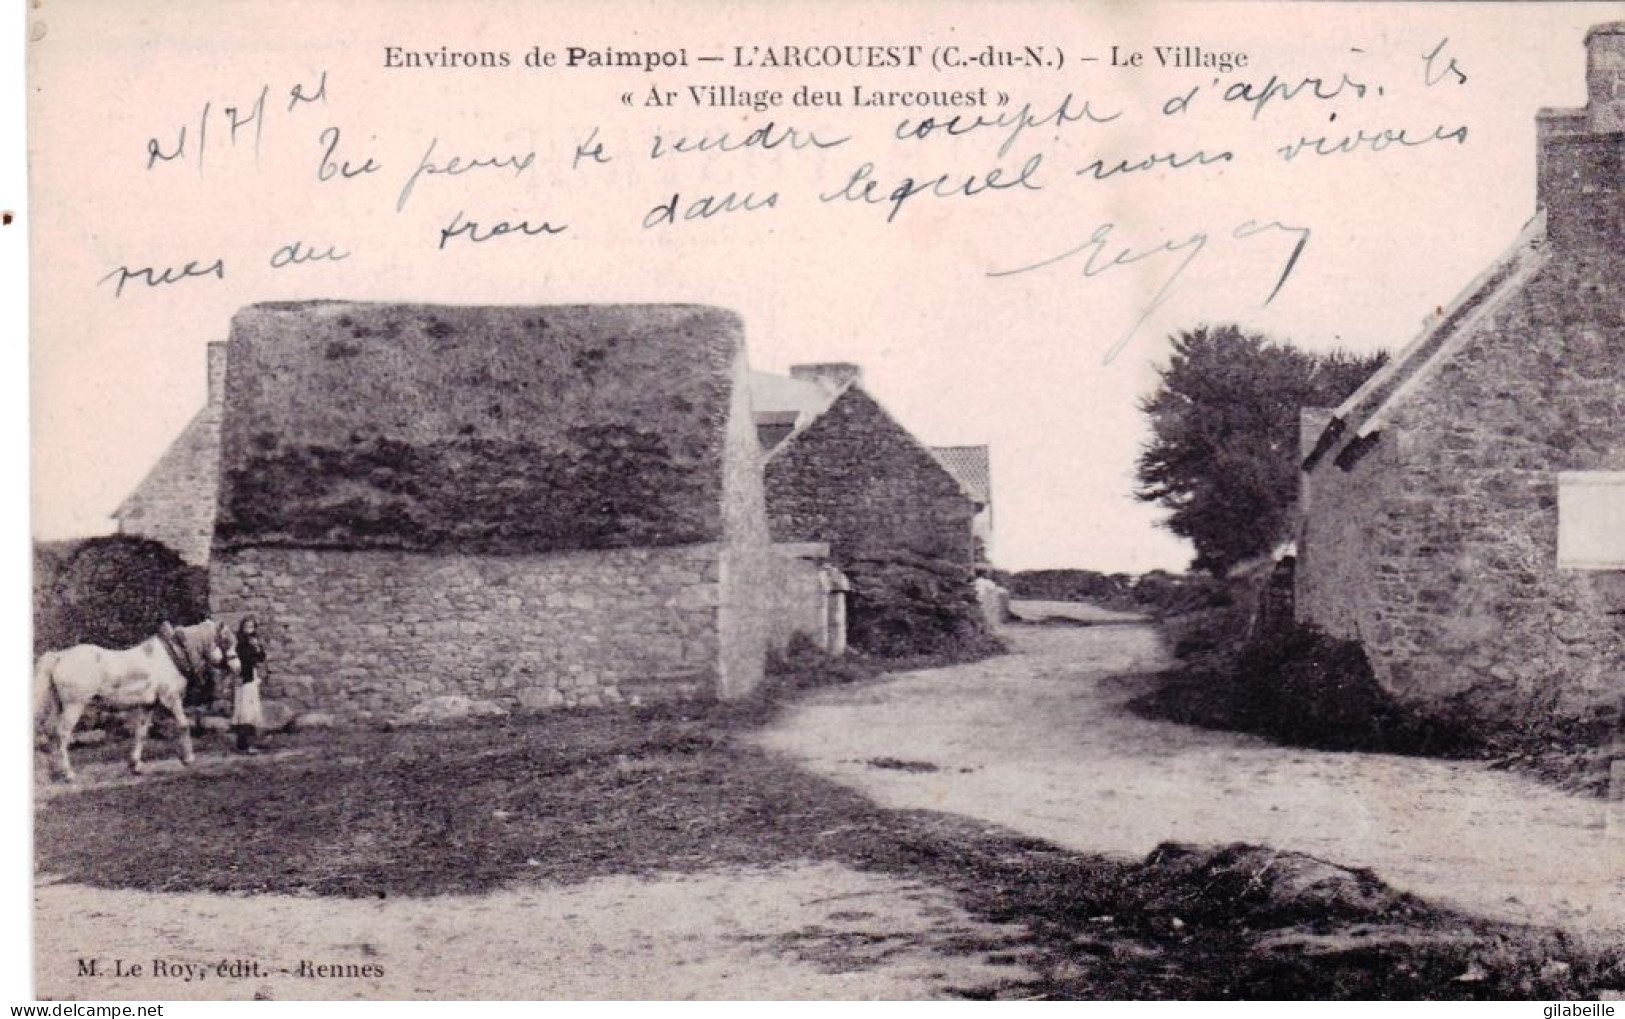 Environs de Paimpol — L'ARCOUEST (C.-du-N.) — Le Village
« Ar Village deu Larcouest »
21/7/21
Tu peux te rendre compte d'après. les
rues du trou dans lequel nous vivons
M. Le Roy, édit. - Rennes
delcampe.net
gilabeille